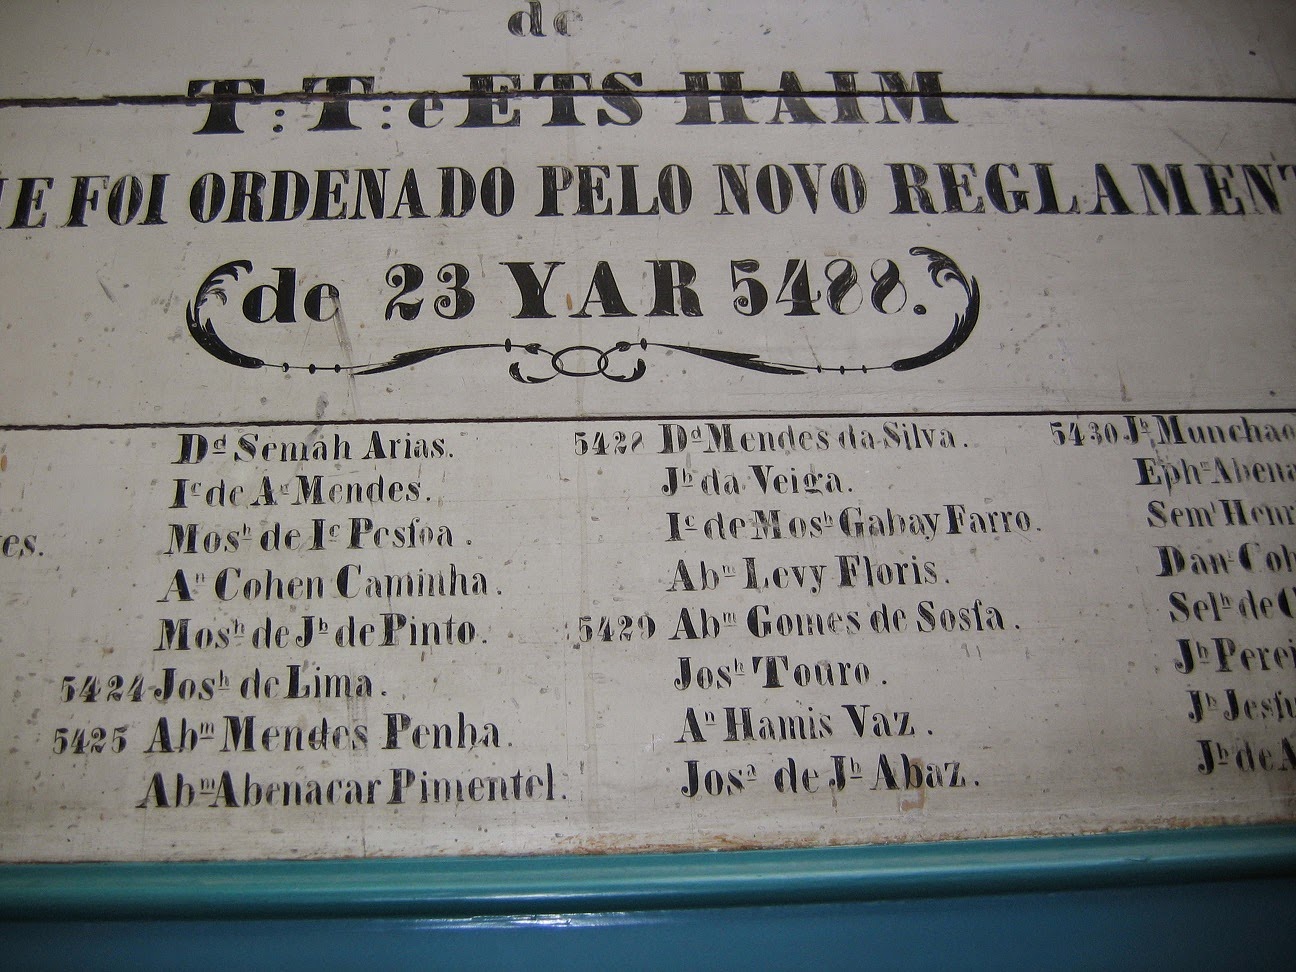 de
T:T:e ETS HAIM
FOI ORDENADO PELO NOVO REGLAMENT
de 23 YAR 5488.
Dᵈ Semah Arias.
Iᶜ de Aⁿ Mendes.
Mosʰ de Iᶜ Pesſoa.
Aⁿ Cohen Caminha.
Mosʰ de Jᵇ de Pinto.
5424 Josʰ de Lima.
5425 Abᵐ Mendes Penha.
Abᵐ Abenacar Pimentel.
5428 Dᵈ Mendes da Silva.
Jᵇ da Veiga.
Iᶜ de Mosʰ Gabay Farro.
Abᵐ Levy Floris.
5429 Abᵐ Gomes de Sosſa.
Josʰ Touro.
Aⁿ Hamis Vaz.
Josᵃ de Jᵇ Abaz.
5430 Jᵇ Munchao
Ephᵐ Abena
Semˡ Henr
Danˡ Coh
Selʰ de C
Jᵇ Perei
Jᵇ Jesſu
Jᵇ de A